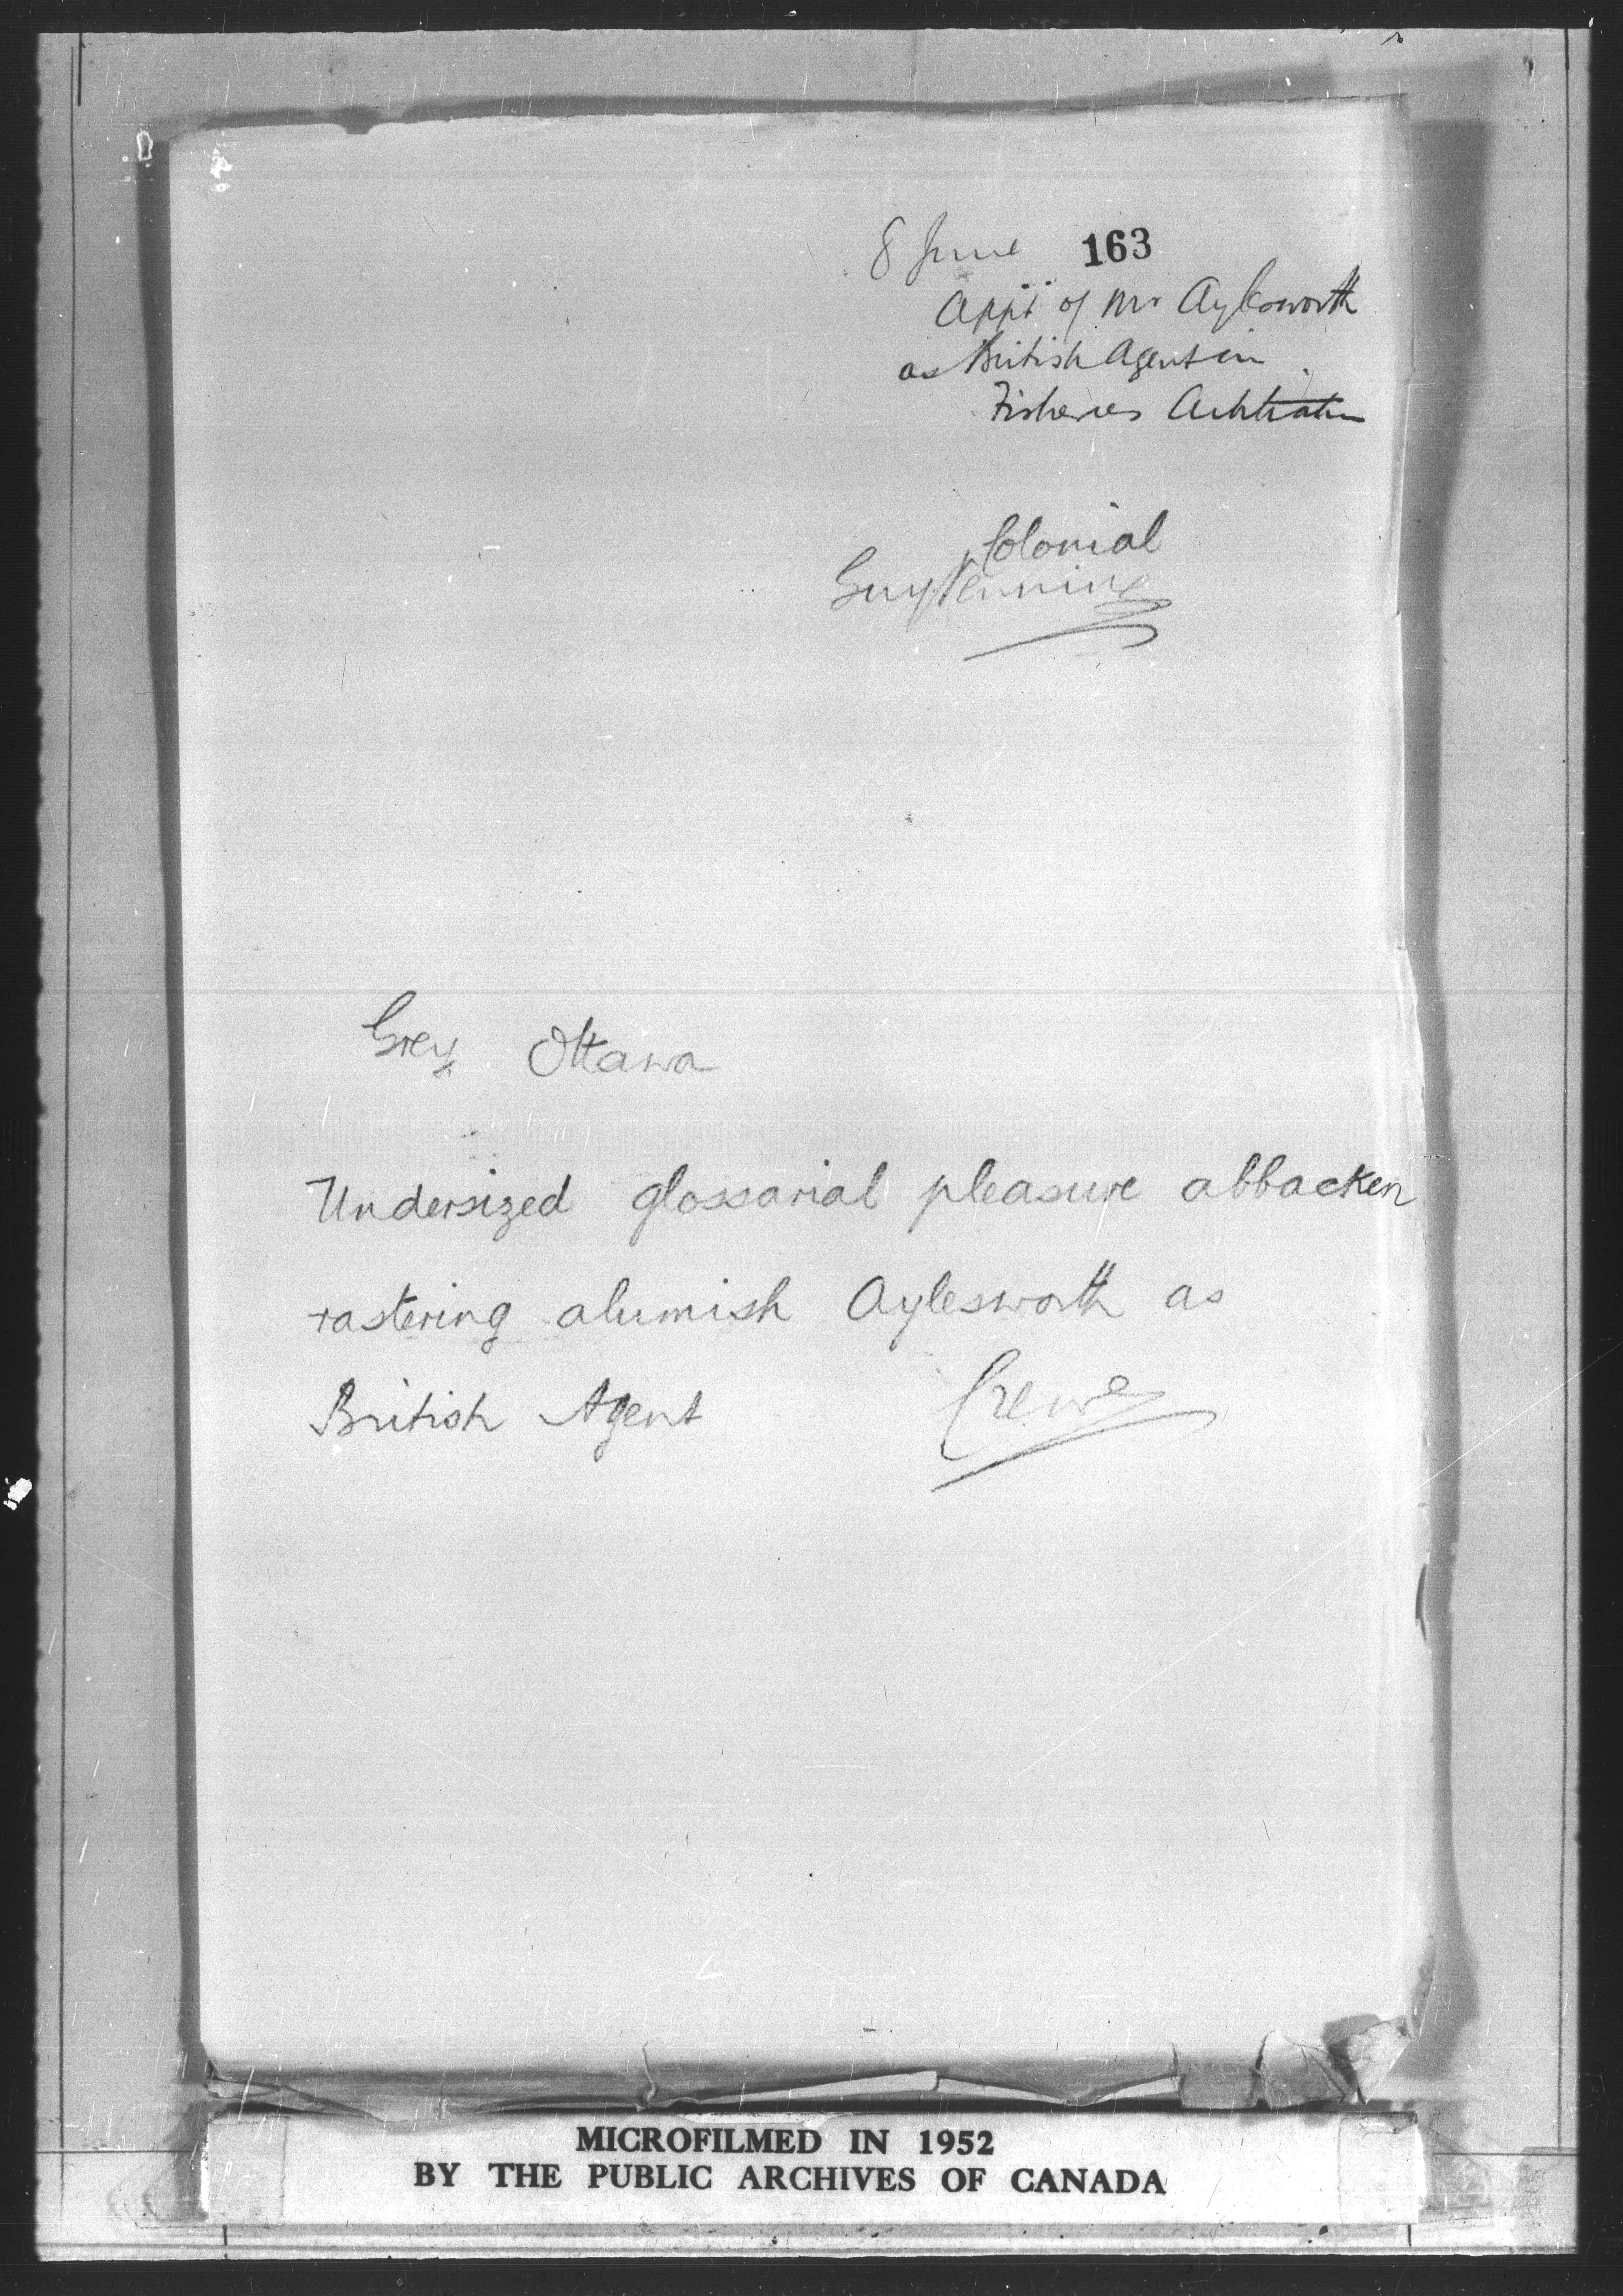 8 June 163
Appt of Mr Aylesworth
as British Agent in
Fisheries Arbitration
Colonial
Guy
Grey Ottawa
Undersized glossarial pleasure abbacken
rastering alumish Aylesworth as
British Agent Crewe
MICROFILMED IN 1952
BY THE PUBLIC ARCHIVES OF CANADA